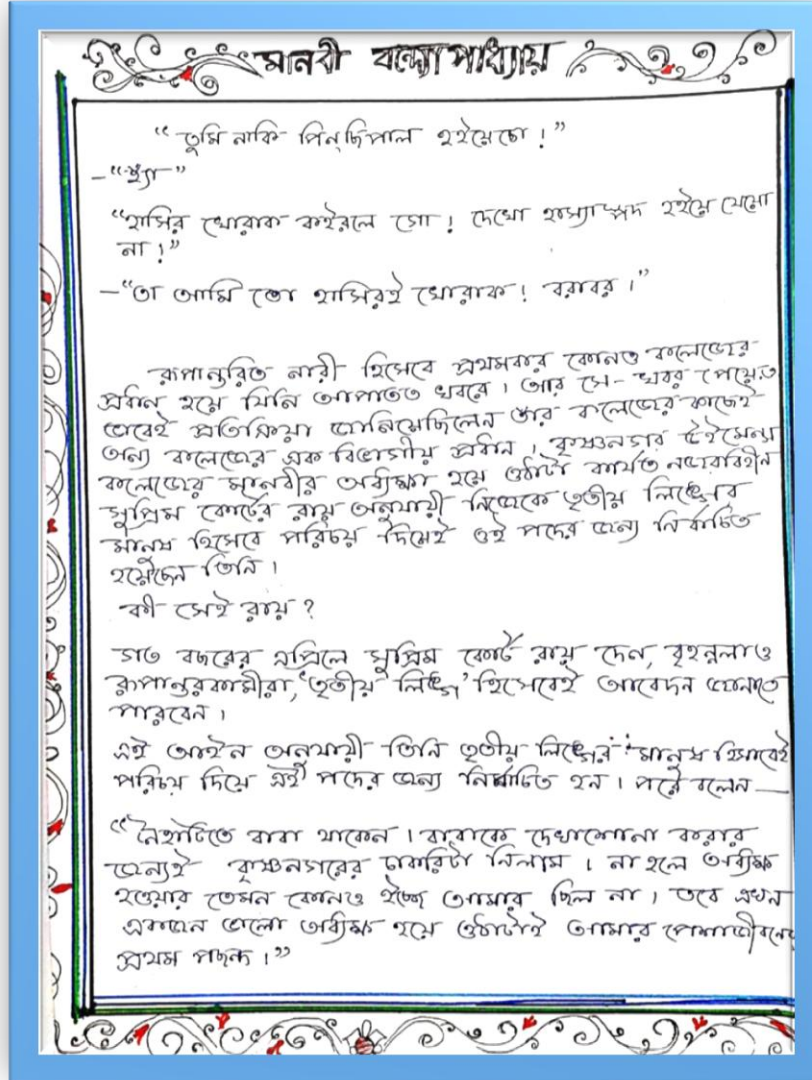 মানবী বন্দ্যোপাধ্যায়
“তুমি নাকি পিন্‌ছিপাল হইয়েচো!”
–“হ্যাঁ”
“হাসির খোরাক কইরলে গো! দেখো হাস্যাস্পদ হইয়ে যেয়ো
না!”
–“তা আমি তো হাসিরই খোরাক! বরাবর।”
রূপান্তরিত নারী হিসেবে প্রথমবার কোনও কলেজের
প্রধান হয়ে যিনি আপাতত খবরে। আর সে-খবর পেয়ে
এভাবেই প্রতিক্রিয়া জানিয়েছিলেন তাঁর কলেজের কাছেই
অন্য কলেজের এক বিভাগীয় প্রধান। কৃষ্ণনগর উইমেন্স
কলেজের মানবীর অধ্যক্ষা হয়ে ওঠাটা কার্যত নজরবিহীন
সুপ্রিম কোর্টের রায় অনুযায়ী নিজেকে তৃতীয় লিঙ্গের
মানুষ হিসেবে পরিচয় দিয়েই ওই পদের জন্য নির্বাচিত
হয়েছেন তিনি।
কী সেই রায়?
গত বছরের এপ্রিলে সুপ্রিম কোর্ট রায় দেন, বৃহন্নলাও
রূপান্তরকামীরা, ‘তৃতীয় লিঙ্গ’ হিসেবেই আবেদন জানাতে
পারবেন।
এই আইন অনুযায়ী তিনি তৃতীয় লিঙ্গের মানুষ হিসাবেই
পরিচয় দিয়ে এই পদের জন্য নির্বাচিত হন। পরে বলেন —
“নৈহাটিতে বাবা থাকেন। বাবাকে দেখাশোনা করার
জন্যই কৃষ্ণনগরের চাকরিটা নিলাম। না হলে অধ্যক্ষ
হওয়ার তেমন কোনও ইচ্ছে আমার ছিল না। তবে এখন
একজন ভালো অধ্যক্ষ হয়ে ওঠাটাই আমার পেশাজীবনের
প্রথম পছন্দ।”